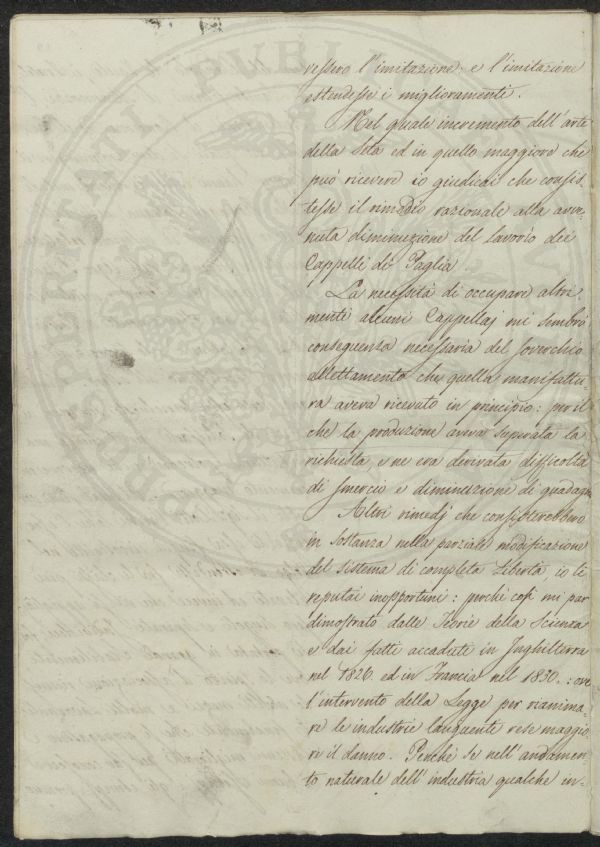 vessero l'imitazione, e l'imitazione
estendesse i miglioramenti.
Nel quale incremento dell'arte
della Seta ed in quello maggiore che
può ricevere io giudicai che consis-
tesse il rimedio razionale alla avve-
nuta diminuzione del lavorìo dei
Cappelli di Paglia.
La necessità di occupare altri-
menti alcuni Cappellaj mi sembrò
conseguenza necessaria del soverchio
allettamento che quella manifattu-
ra aveva ricevuto in principio: per il
che la produzione aveva superata la
richiesta, e ne era derivata difficoltà
di smercio e diminuzione di guadagni
Altri rimedj che consisterebbero
in sostanza nella parziale modificazione
del sistema di completa Libertà, io li
reputai inopportuni: perchè così mi par
dimostrato dalle Teorie della Scienza
e dai fatti accaduti in Inghilterra
nel 1826. ed in Francia nel 1830.: ove
l'intervento della Legge per rianima-
re le industrie languenti rese maggio
re il danno. Perchè se nell'andamen-
to naturale dell'industria qualche in-